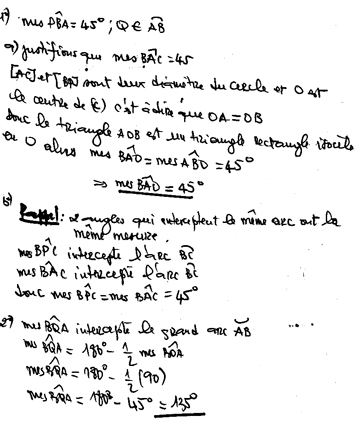 1) mes PB̂A = 45° ; Q ∈ AB̂
a) justifions que mes BÂC = 45
[AC] et [BD] sont deux diamètre du cercle et O est
le centre de (C) c'est à dire que OA = OB
donc le triangle AOB est un triangle rectangle isocèle
en O alors mes BÂO = mes AB̂O = 45°
⇒ mes BÂO = 45°
b) Rappel : 2 angles qui interceptent le même arc ont la
même mesure.
mes BP̂C intercepte l'arc BC
mes BÂC intercepte l'arc BC
donc mes BP̂C = mes BÂC = 45°
2°) mes BQ̂A intercepte le grand arc AB
mes BQ̂A = 180° - 1/2 mes BÔA
mes BQ̂A = 180° - 1/2 (90)
mes BQ̂A = 180° - 45° = 135°